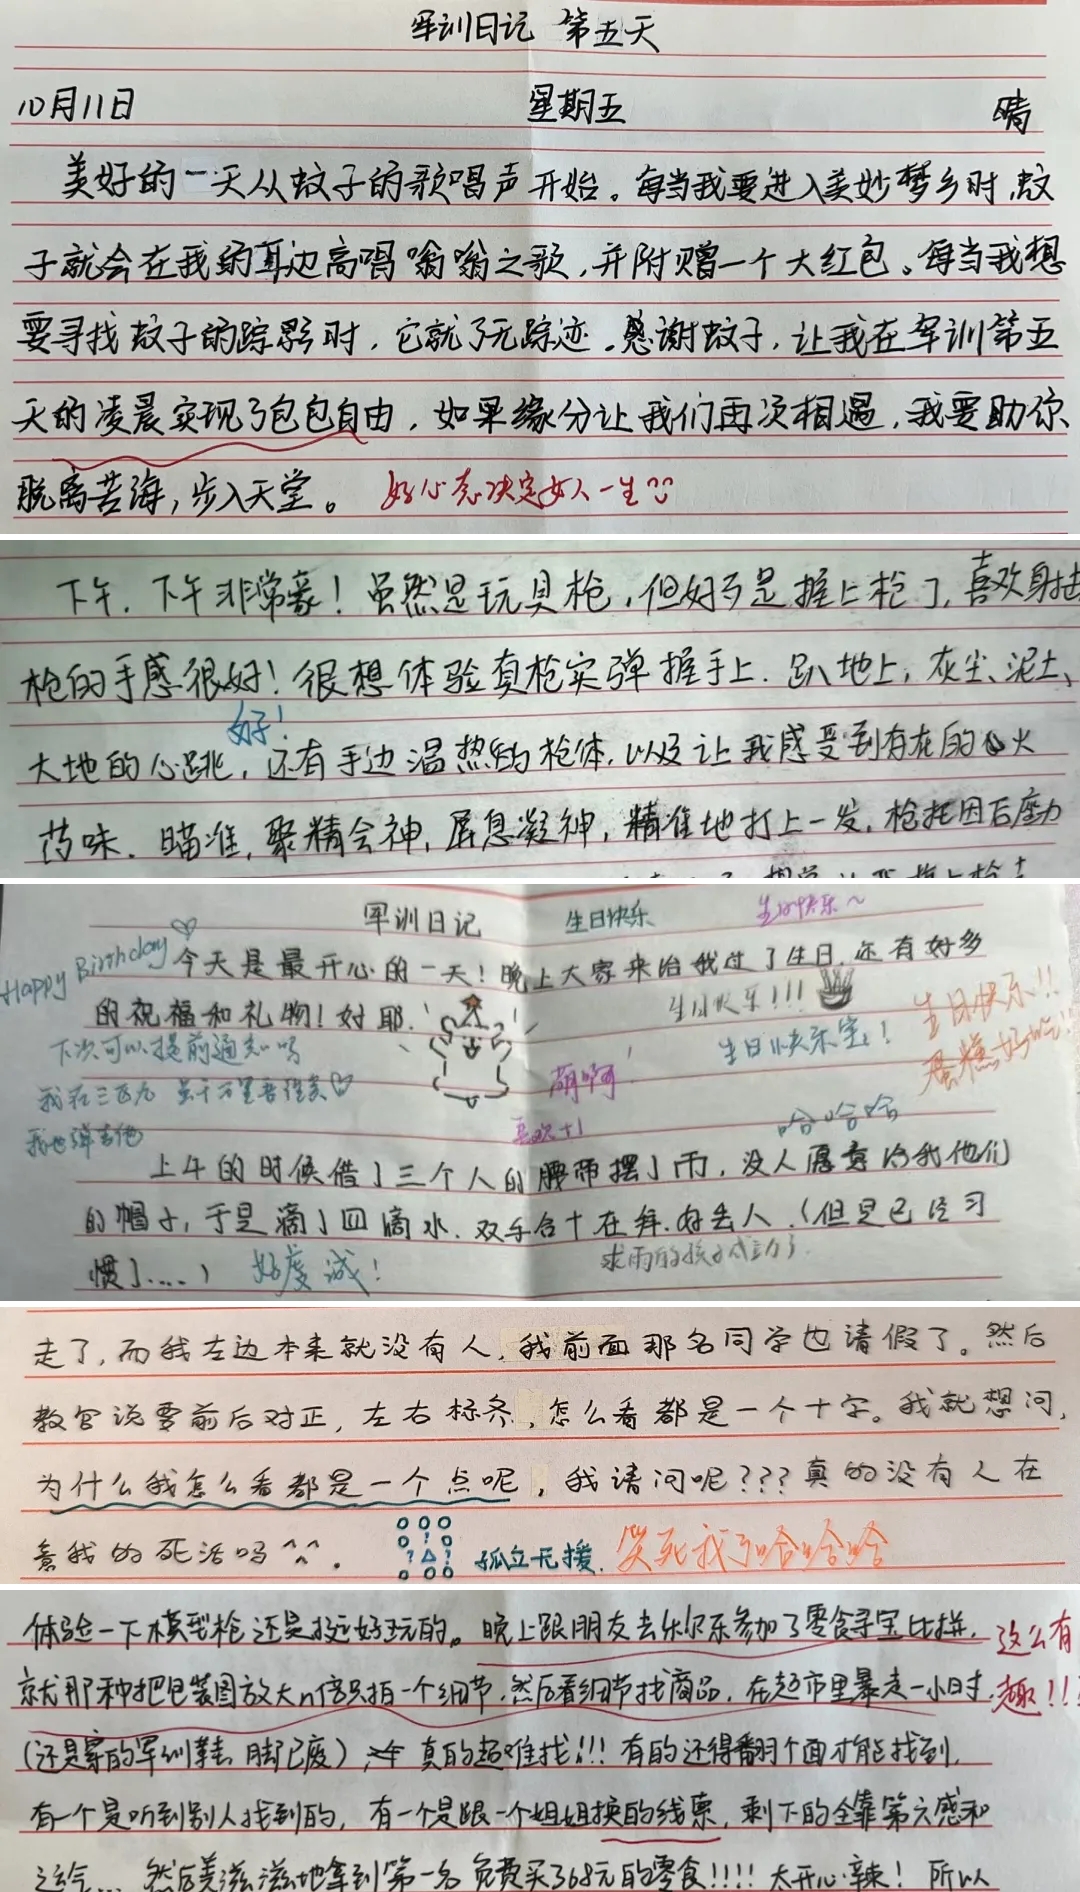 军训日记 第五天
10月11日 星期五 晴
美好的一天从蚊子的歌唱声开始。每当我要进入美妙梦乡时,蚊
子就会在我的耳边高唱嗡嗡之歌,并附赠一个大红包。每当我想
要寻找蚊子的踪影时,它就了无踪迹。感谢蚊子,让我在军训第五
天的凌晨实现了包包自由,如果缘分让我们再次相遇,我要助你
脱离苦海,步入天堂。 好心态决定女人一生
下午,下午非常豪!虽然是玩具枪,但好歹是握上枪了,喜欢射击
枪的手感很好!很想体验真枪实弹握手上,趴地上,灰尘、泥土、
好!
大地的心跳,还有手边温热的枪体,以及让我感受到存在的火
药味,瞄准,聚精会神,屏息凝神,精准地打上一发,枪托因后座力
军训日记 生日快乐 生日快乐~
Happy Birthday 今天是最开心的一天!晚上大家来给我过了生日,还有好多
的祝福和礼物!好耶! 生日快乐!!! 生日快乐!!
下次可以提前通知吗 生日快乐宝! 蛋糕好吃!
我在三百九 萌啊!
我也弹吉他 喜欢+1 哈哈哈
上午的时候借了三个人的腰带摆了雨,没人愿意给我他们
的帽子,于是滴了四滴水,双手合十在拜,好丢人,(但是已经习
惯了....) 好虔诚! 求雨的孩子成功了
走了,而我左边本来就没有人,我前面那名同学也请假了。然后
教官说要前后对正,左右标齐,怎么看都是一个十字。我就想问,
为什么我怎么看都是一个点呢,我请问呢???真的没有人在
意我的死活吗^^。 孤立无援. 笑死我了哈哈哈哈
体验一下模型枪还是挺好玩的。晚上跟朋友去乐尔乐参加了零食寻宝比拼, 这么有
就那种把包装图放大n倍只拍一个细节,然后看细节找商品,在超市里暴走一小时, 趣!!!
(还是穿的军训鞋 脚已废) 真的超难找!!! 有的还得翻个面才能找到,
有一个是听到别人找到的,有一个是跟一个姐姐换的线索,剩下的全靠第六感和
运气... 然后美滋滋地拿到第一名 免费买了368元的零食!!!! 太开心辣! 所以